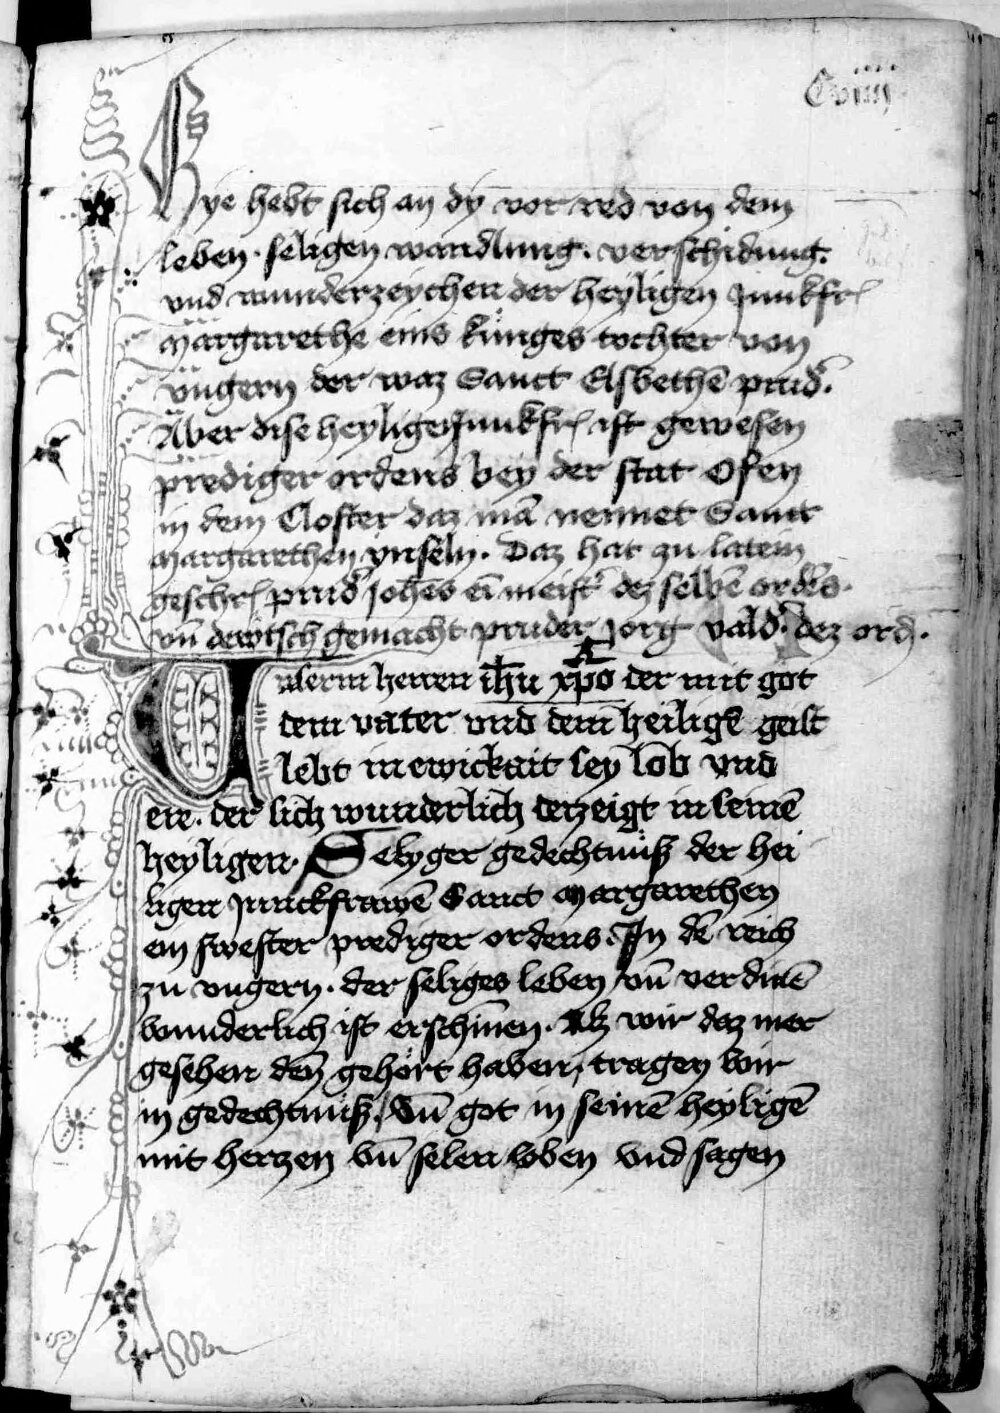 Cviiij
Hye hebt sich an dy vor red von dem
leben · seligen wandlung · verschidung ·
vnd wunderzeychen der heyligen Junkfr
Margarethe eins kunges tochter von
vngern der waz Sanct Elsbethē prud̄ ·
Aber dise heyligen Junkfr ist gewesen
prediger ordens bey der stat Ofen
in dem Closter daz mā nennet Sant
Margarethen ynseln · Daz hat zu latein
geschr prud̄ Joh̄es ei meist̄ dez selbē ordēs ·
vn̄ dewtsch gemacht pruder Jorg vald̄ · dez ord ·
Unserm herren ih̄u xp̄o der mit got
dem vater vnd dem heiligē geist
lebt in ewickait sey lob vnd
ere · der sich wunderlich erzeigt in seinē
heyligen · Selyger gedechtnuß der hei
ligen Junckfrawē Sanct Margarethen
ein swester prediger ordens · In dē reich
zu vngern · der seliges leben vn̄ verdinē
wunderlich ist erschinen · Alz wir daz mer
gesehen den gehört haben, tragen wir
in gedechtnuß, Vn̄ got in seinē heyligē
mit herzen vn̄ selen loben vnd sagen